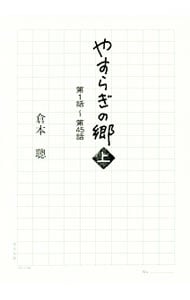 やすらぎの郷
上
第1話～第45話
倉本 聰